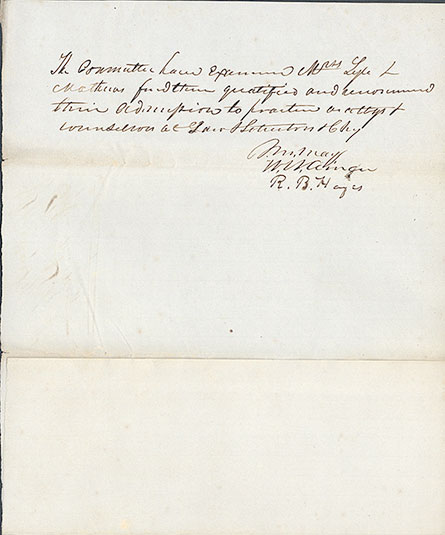 The Committee have Examined Mess Lyle &
Mathews find them qualified and recommend
their admission to practice as attys &
counsellors at Law & Solicitors & Chy
R. B. Hayes